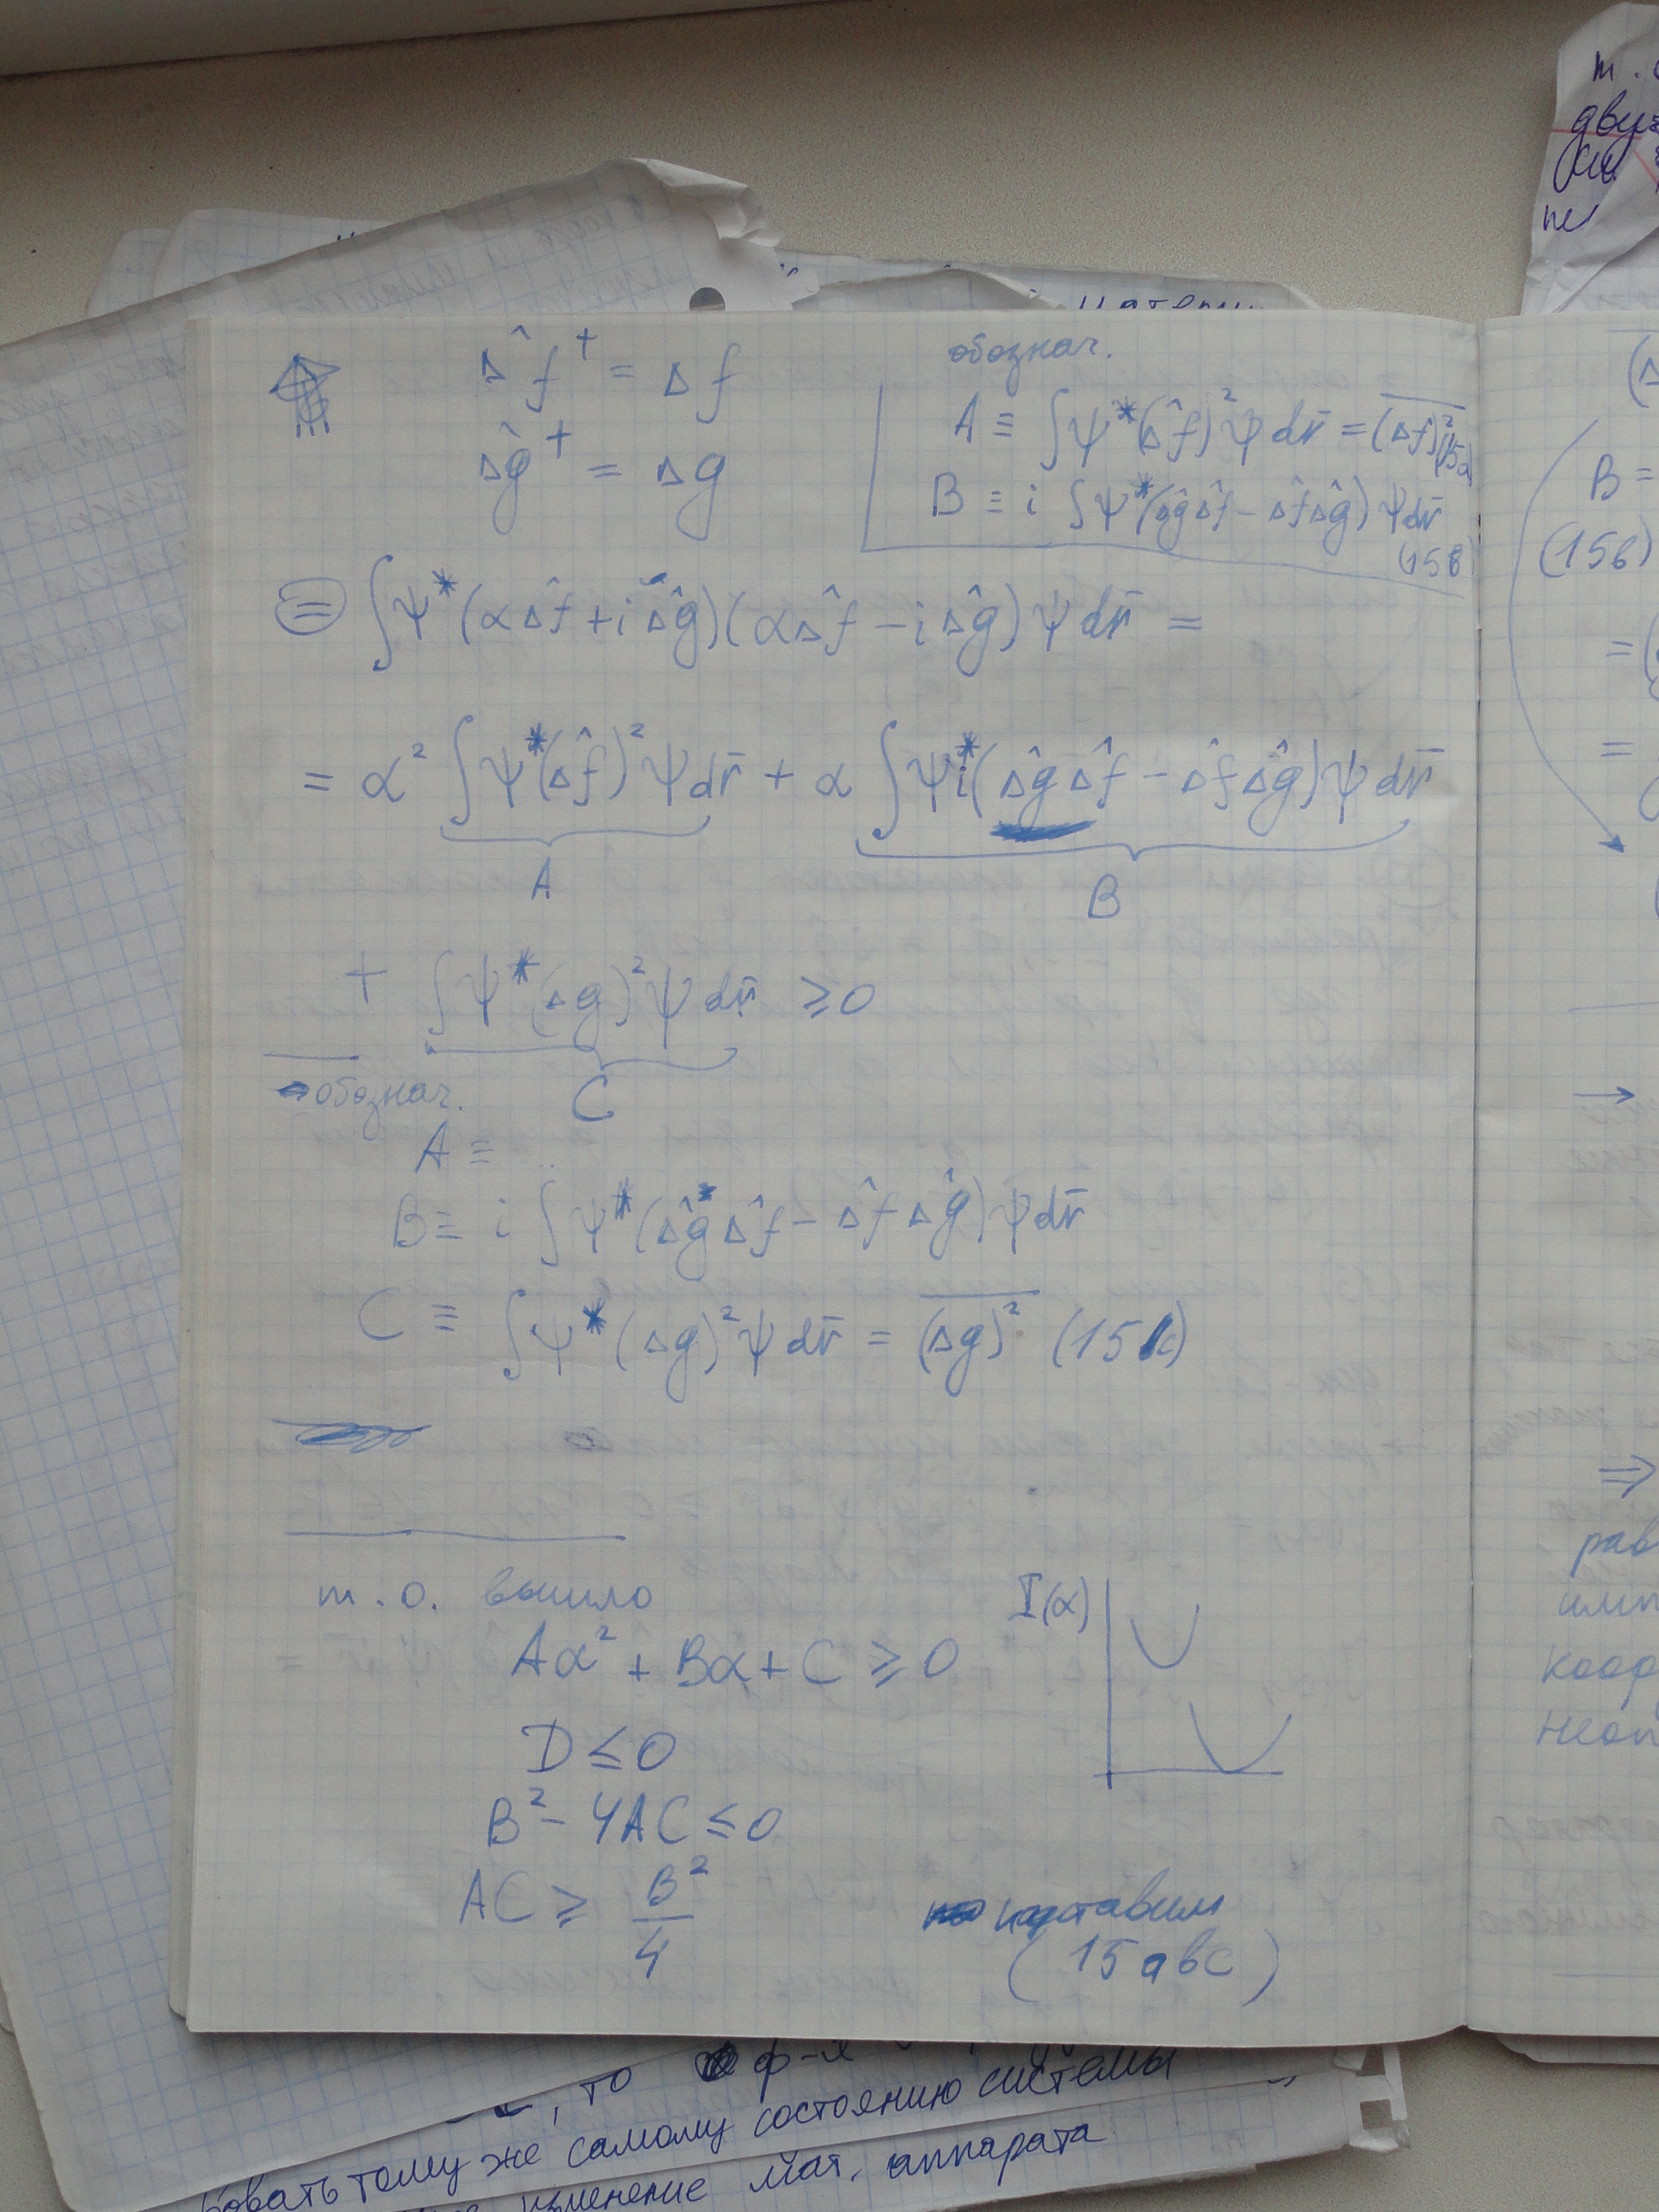 Δf̂⁺ = Δf
Δĝ⁺ = Δg
обознач.
A ≡ ∫ψ*(Δf̂)²ψ dr̄ = (Δf)² (15a)
B ≡ i ∫ψ*(Δĝ Δf̂ − Δf̂ Δĝ) ψ dr̄
(15в)
= ∫ψ*(αΔf̂ + iΔĝ)(αΔf̂ − iΔĝ) ψ dr̄ =
= α² ∫ψ*(Δf̂)²ψ dr̄ + α ∫ψ*i(Δĝ Δf̂ − Δf̂ Δĝ)ψ dr̄
A
B
+ ∫ψ*(Δg)²ψ dr̄ ≥ 0
C
обознач.
A ≡ ...
B ≡ i ∫ψ*(Δĝ Δf̂ − Δf̂ Δĝ)ψ dr̄
C ≡ ∫ψ*(Δg)²ψ dr̄ = (Δg)² (15c)
т.о. вышло
Aα² + Bα + C ≥ 0
I(α)
D ≤ 0
B² − 4AC ≤ 0
AC ≥ B²/4
(15авс)
B =
(15в)
=
=
→
⇒
рав
имп
коор
неоп
т.
, то ф-я
овать тому же самому состоянию системы
изменение мат. аппарата